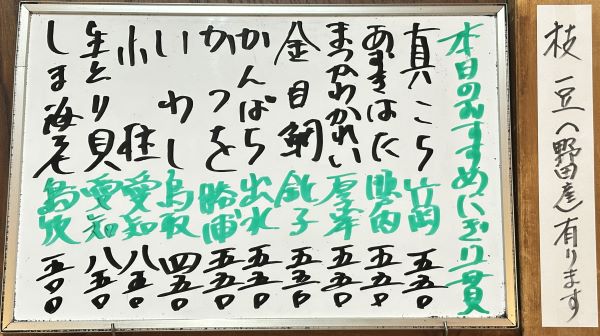 枝豆(野田産)有ります
本日のおすすめにぎり一貫
真こち 竹岡 五五〇
あずきはた 五五〇
まつかわかれい 厚岸 五五〇
金目鯛 銚子 五五〇
かんぱち 出水 五五〇
かつを 勝浦 五五〇
いわし 鳥取 四五〇
小柱 愛知 八五〇
生とり貝 愛知 八五〇
しま海老 五〇〇